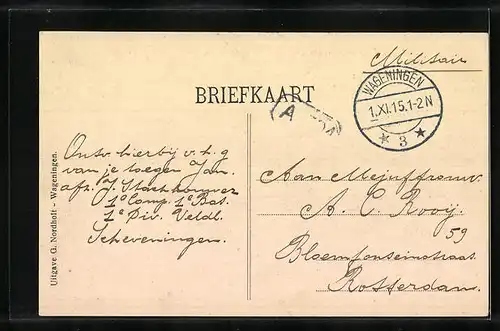 Militair
WAGENINGEN
1.XI.15.1-2N
3
BRIEFKAART
A
Ontv. hierbij v.h.g
van je toegen. Jan.
afz. J.
1e Comp. 1e Bat.
1e Div. Veldl.
Scheveningen.
Aan Mejuffrouw
A. C. Rooij.
59
Bloemfonteinstraat
Rotterdam.
Uitgave G. Nordholt - Wageningen.